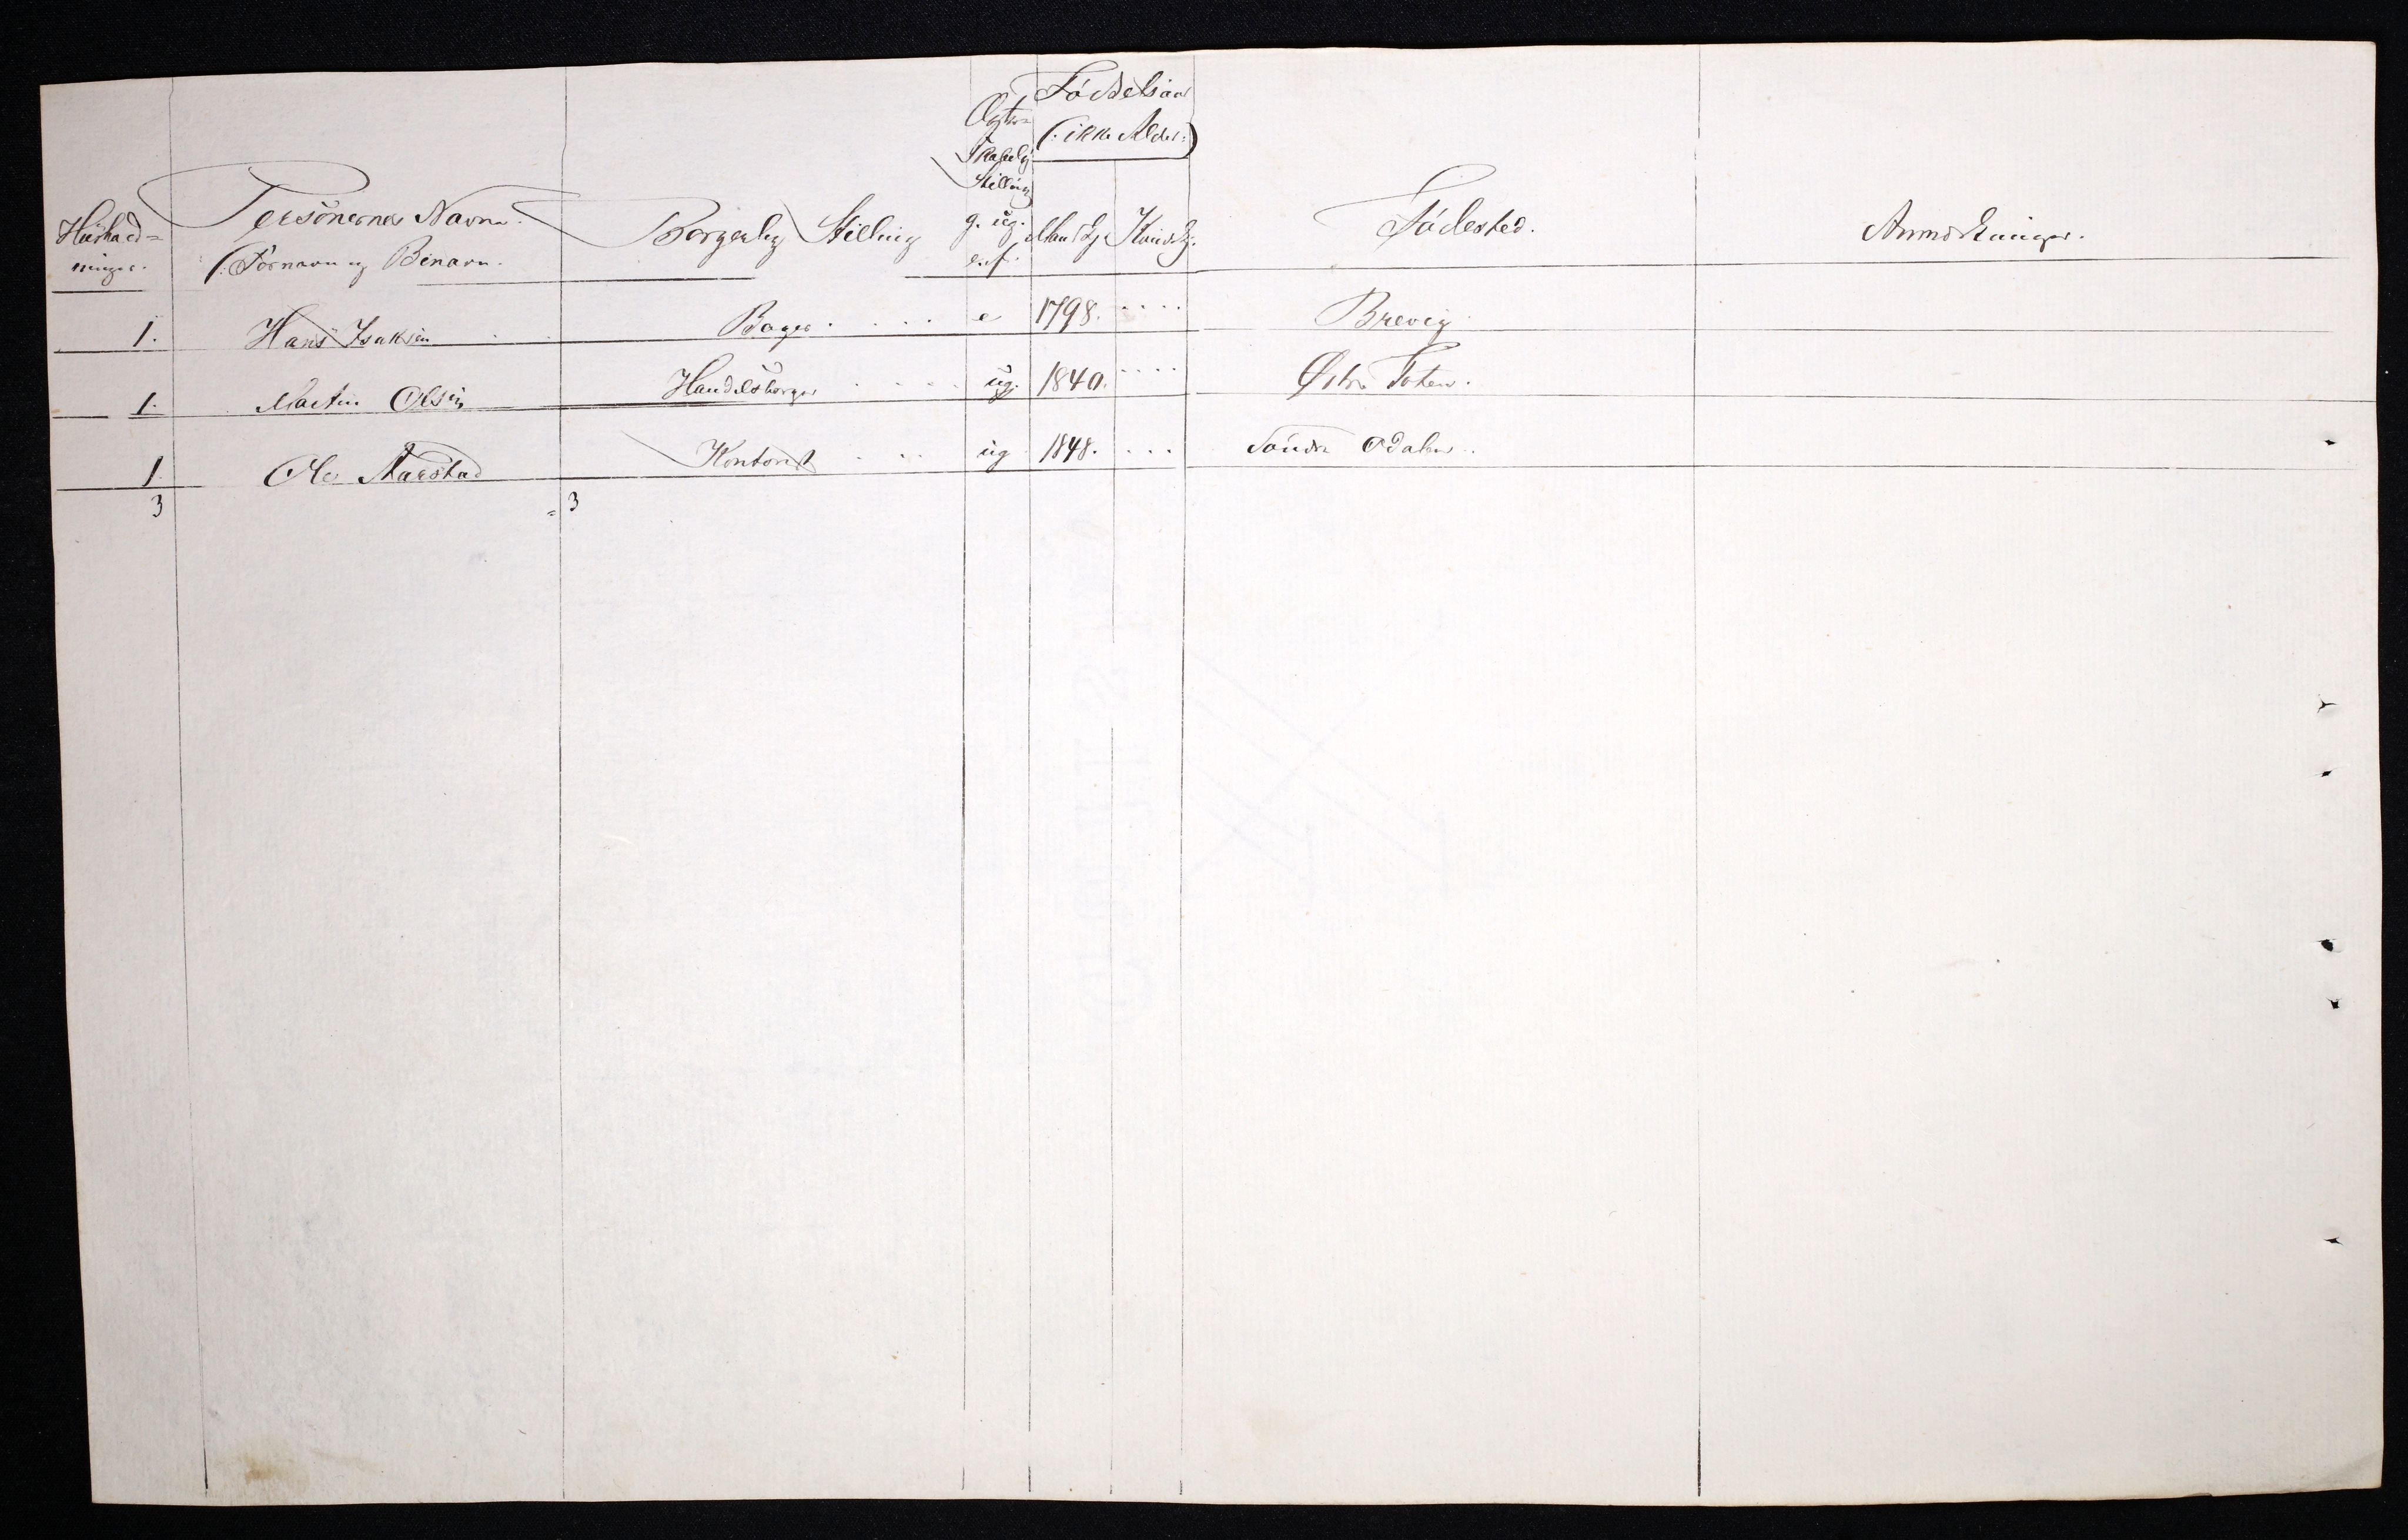 Hushold= Personernes Navn Borgerlig Stilling Ægte= Fødselsaar Fødested. Anmærkninger.
ninger. (:Fornavn og Binavn. skabelig (:ikke Alder:)
Stilling
g. ug. Mandkj. Kvindkj.
e. f.
1. Hans Isaksen Bager . . . . e 1798. . . . . Brevig
1. Martin Olsen Handelsborger . . . . ug. 1840. . . . . Østre Toten.
1. Ole Aarstad Kontorist . . . ug 1848. . . . Søndre Odalen.
3 = 3